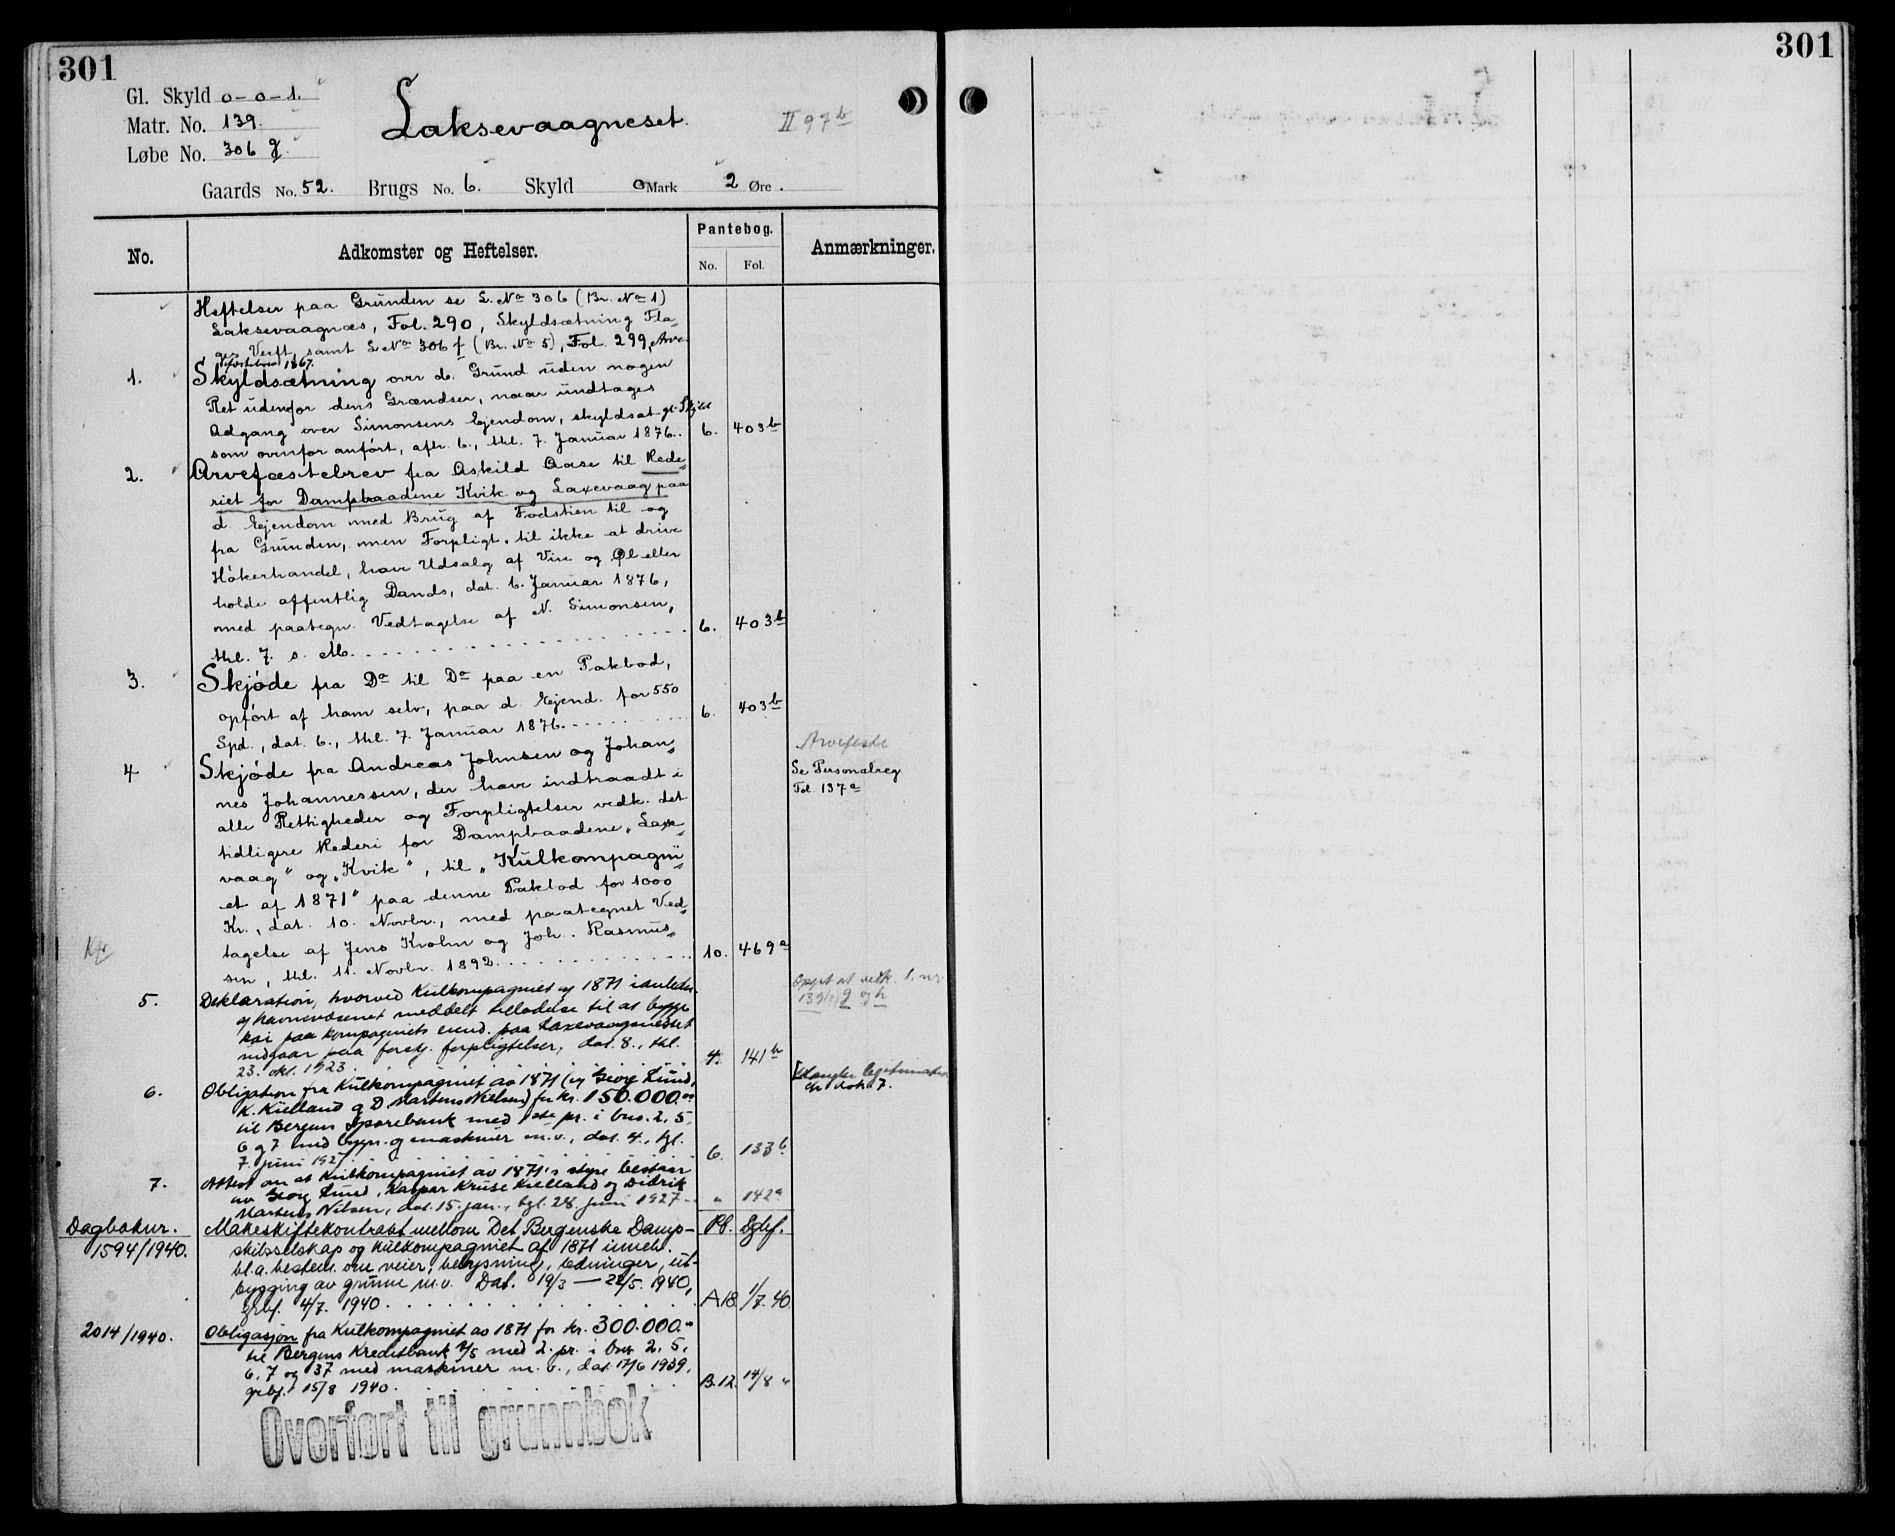 301
301
Gl. Skyld 0-0-1.
Matr. No. 139.
Løbe No. 306 g.
Laksevaagneset.
II 97 b
Gaards No. 52. Brugs No. 6. Skyld 0 Mark 2 Øre.
No.
Adkomster og Heftelser.
Pantebog.
No.
Fol.
Anmærkninger.
Heftelser paa Grunden se L. No 306 (Br. No 1)
Laksevaagnæs, Fol. 290, Skyldsætning Fla-
ges Verft, samt L No 306 f (Br. No 5), Fol. 299, Arve-
fæstebrev 1867.
1. Skyldsætning over d. Grund uden nogen
Ret udenfor dens Grændser, naar undtages
Adgang over Simonsens Ejendom, skyldsat gl. Skyld
som ovenfor anført, afh. 6., thl. 7. Januar 1876. 6. 403 b
2. Arvefæstebrev fra Askild Aase til Rede-
riet for Dampbaadene Kvik og Laxevaag paa
d Ejendom med Brug af Fodstien til og
fra Grunden, men Forpligt. til ikke at drive
Høkerhandel, have Udsalg af Vin og Øl eller
holde offentlig Dands, dat. 6. Januar 1876,
med paategn. Vedtagelse af N. Simonsen,
thl. 7. s. M. 6. 403 b
3. Skjøde fra Do til Do paa en Pakbod,
opført af ham selv, paa d. Ejend. for 550
Spd., dat. 6., thl. 7. Januar 1876. 6. 403 b
4 Skjøde fra Andreas Johnsen og Johan-
nes Johannessen, der have indtraadt i
alle Rettigheder og Forpligtelser vedk. det
tidligere Rederi for Dampbaadene "Laxe-
vaag" og "Kvik", til "Kulkompagni-
et af 1871" paa denne Pakbod for 1000
Kr., dat. 10. Novbr., med paategnet Ved-
tagelse af Jens Krohn og Joh. Rasmus-
sen, thl. 11. Novbr. 1892. 10. 469 a
Arvefeste
Se Personalreg
Fol 137 a
5. Deklaration, hvorved Kulkompagniet af 1871 i anledn.
af havnevæsenet meddelt tilladelse til at bygge
kai paa kompagniets eiend. paa Laxevaagnesset
indgaar paa forskj. forpligtelser, dat. 8., thl.
23. okt. 1923. 4. 141 b
g og h
6. Obligation fra Kulkompagniet av 1871 (og Georg Lund,
K. Kielland og D Martens Nielsen) for kr. 150.000.00
til Bergens Sparebank med 1ste pr. i bnr. 2, 5,
6 og 7 med bygn. og maskiner m.v., dat. 4., tgl.
7. juni 1927. 6. 133 b
Mangler legitimation
cfr dok 7.
7. Attest om at Kulkompagniet av 1871's styre bestaar
av Georg Lund, Kaspar Kruse Kielland og Didrik
Martens Nilsen, dat. 15. jan., tgl. 28. juni 1927. " 142 a
Dagboknr.
1594/1940.
Makeskiftekontrakt mellom Det Bergenske Damp-
skibsselskap og Kulkompagniet af 1871 inneh.
bl.a. bestem. om veier, belysning, ledninger, ut-
bygging av grunn m.v. Dat. 19/3 — 22/5. 1940,
4/7. 1940. A18 1/7. 40.
Pb.
2014/1940.
Obligasjon fra Kulkompagniet av 1871 for kr. 300.000.00
til Bergens Kreditbank A/S med 2. pr. i bnr 2, 5,
6, 7 og 37 med maskiner m. v., dat. 17/6 1939,
15/8 1940. B.12. 14/8 "
Overført til grunnbok